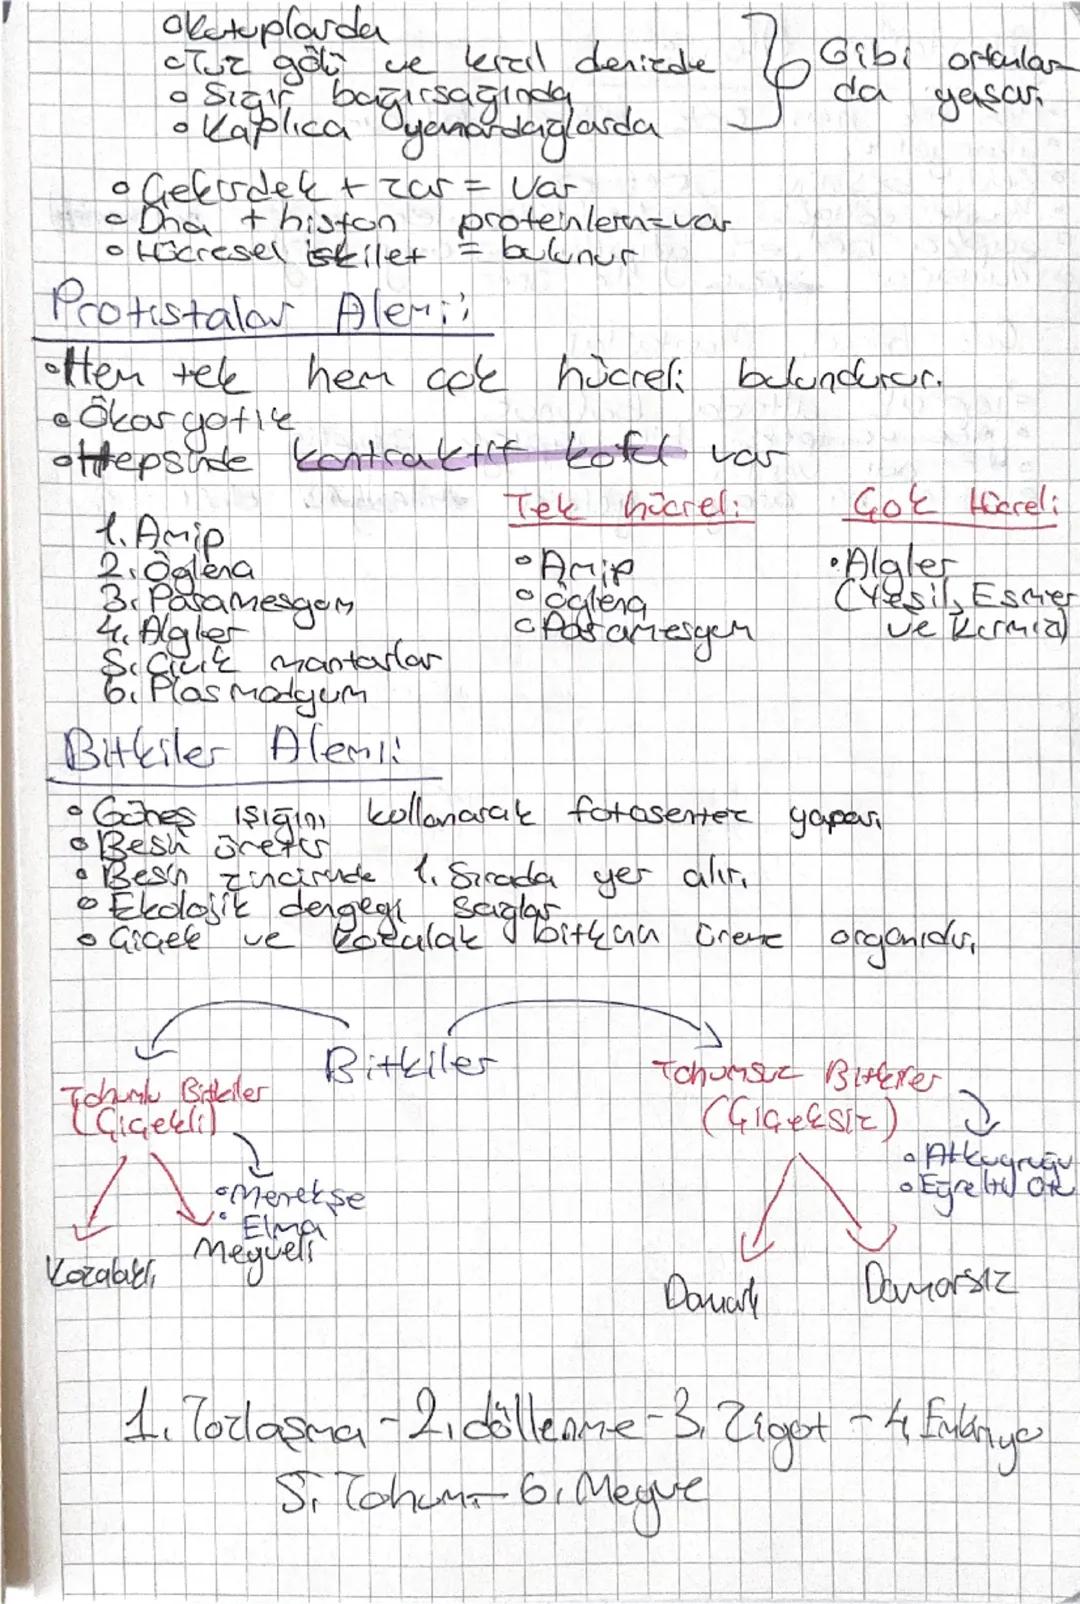 Kutuplarda
Tuz gölü ve kızıl denizde
Sığır bağırsağında
Kaplıca yanardağlarda
Gibi ortamlar
da yaşar.
Çekirdek + zar = Var
Dna + histon proteinleri = var
Hücresel iskilet = bulunur
Protistalar Alemi:
Hem tek hem çok hücreli bulundurur.
Ökaryotik
Hepsinde kontraktif koful var
Tek hücreli: Çok Hücreli
1. Amip
2. Öglena
3. Paramesyum
4. Algler
5. Cıvık mantarlar
6. Plasmodyum
Amip
Öglena
Paramesyum
Algler
(Yeşil, Esmer
ve Kırmızı)
Bitkiler Alemi:
Güneş ışığını kullanarak fotosentez yapar.
Besin üretir
Besin zincirinde 1. Sırada yer alır.
Ekolojik dengeyi sağlar
Çiçek ve kozalak bitkinin üreme organıdır.
Bitkiler
Tohumlu Bitkiler
(Çiçekli)
Menekşe
Elma
Kozalaklı
Meyveli
Tohumsuz Bitkiler
(Çiçeksiz)
Atkuyruğu
Eğrelti Otu
Damarlı
Damarsız
1. Tozlaşma - 2. döllenme - 3. Zigot - 4. Embriyo
5. Tohum - 6. Meyve